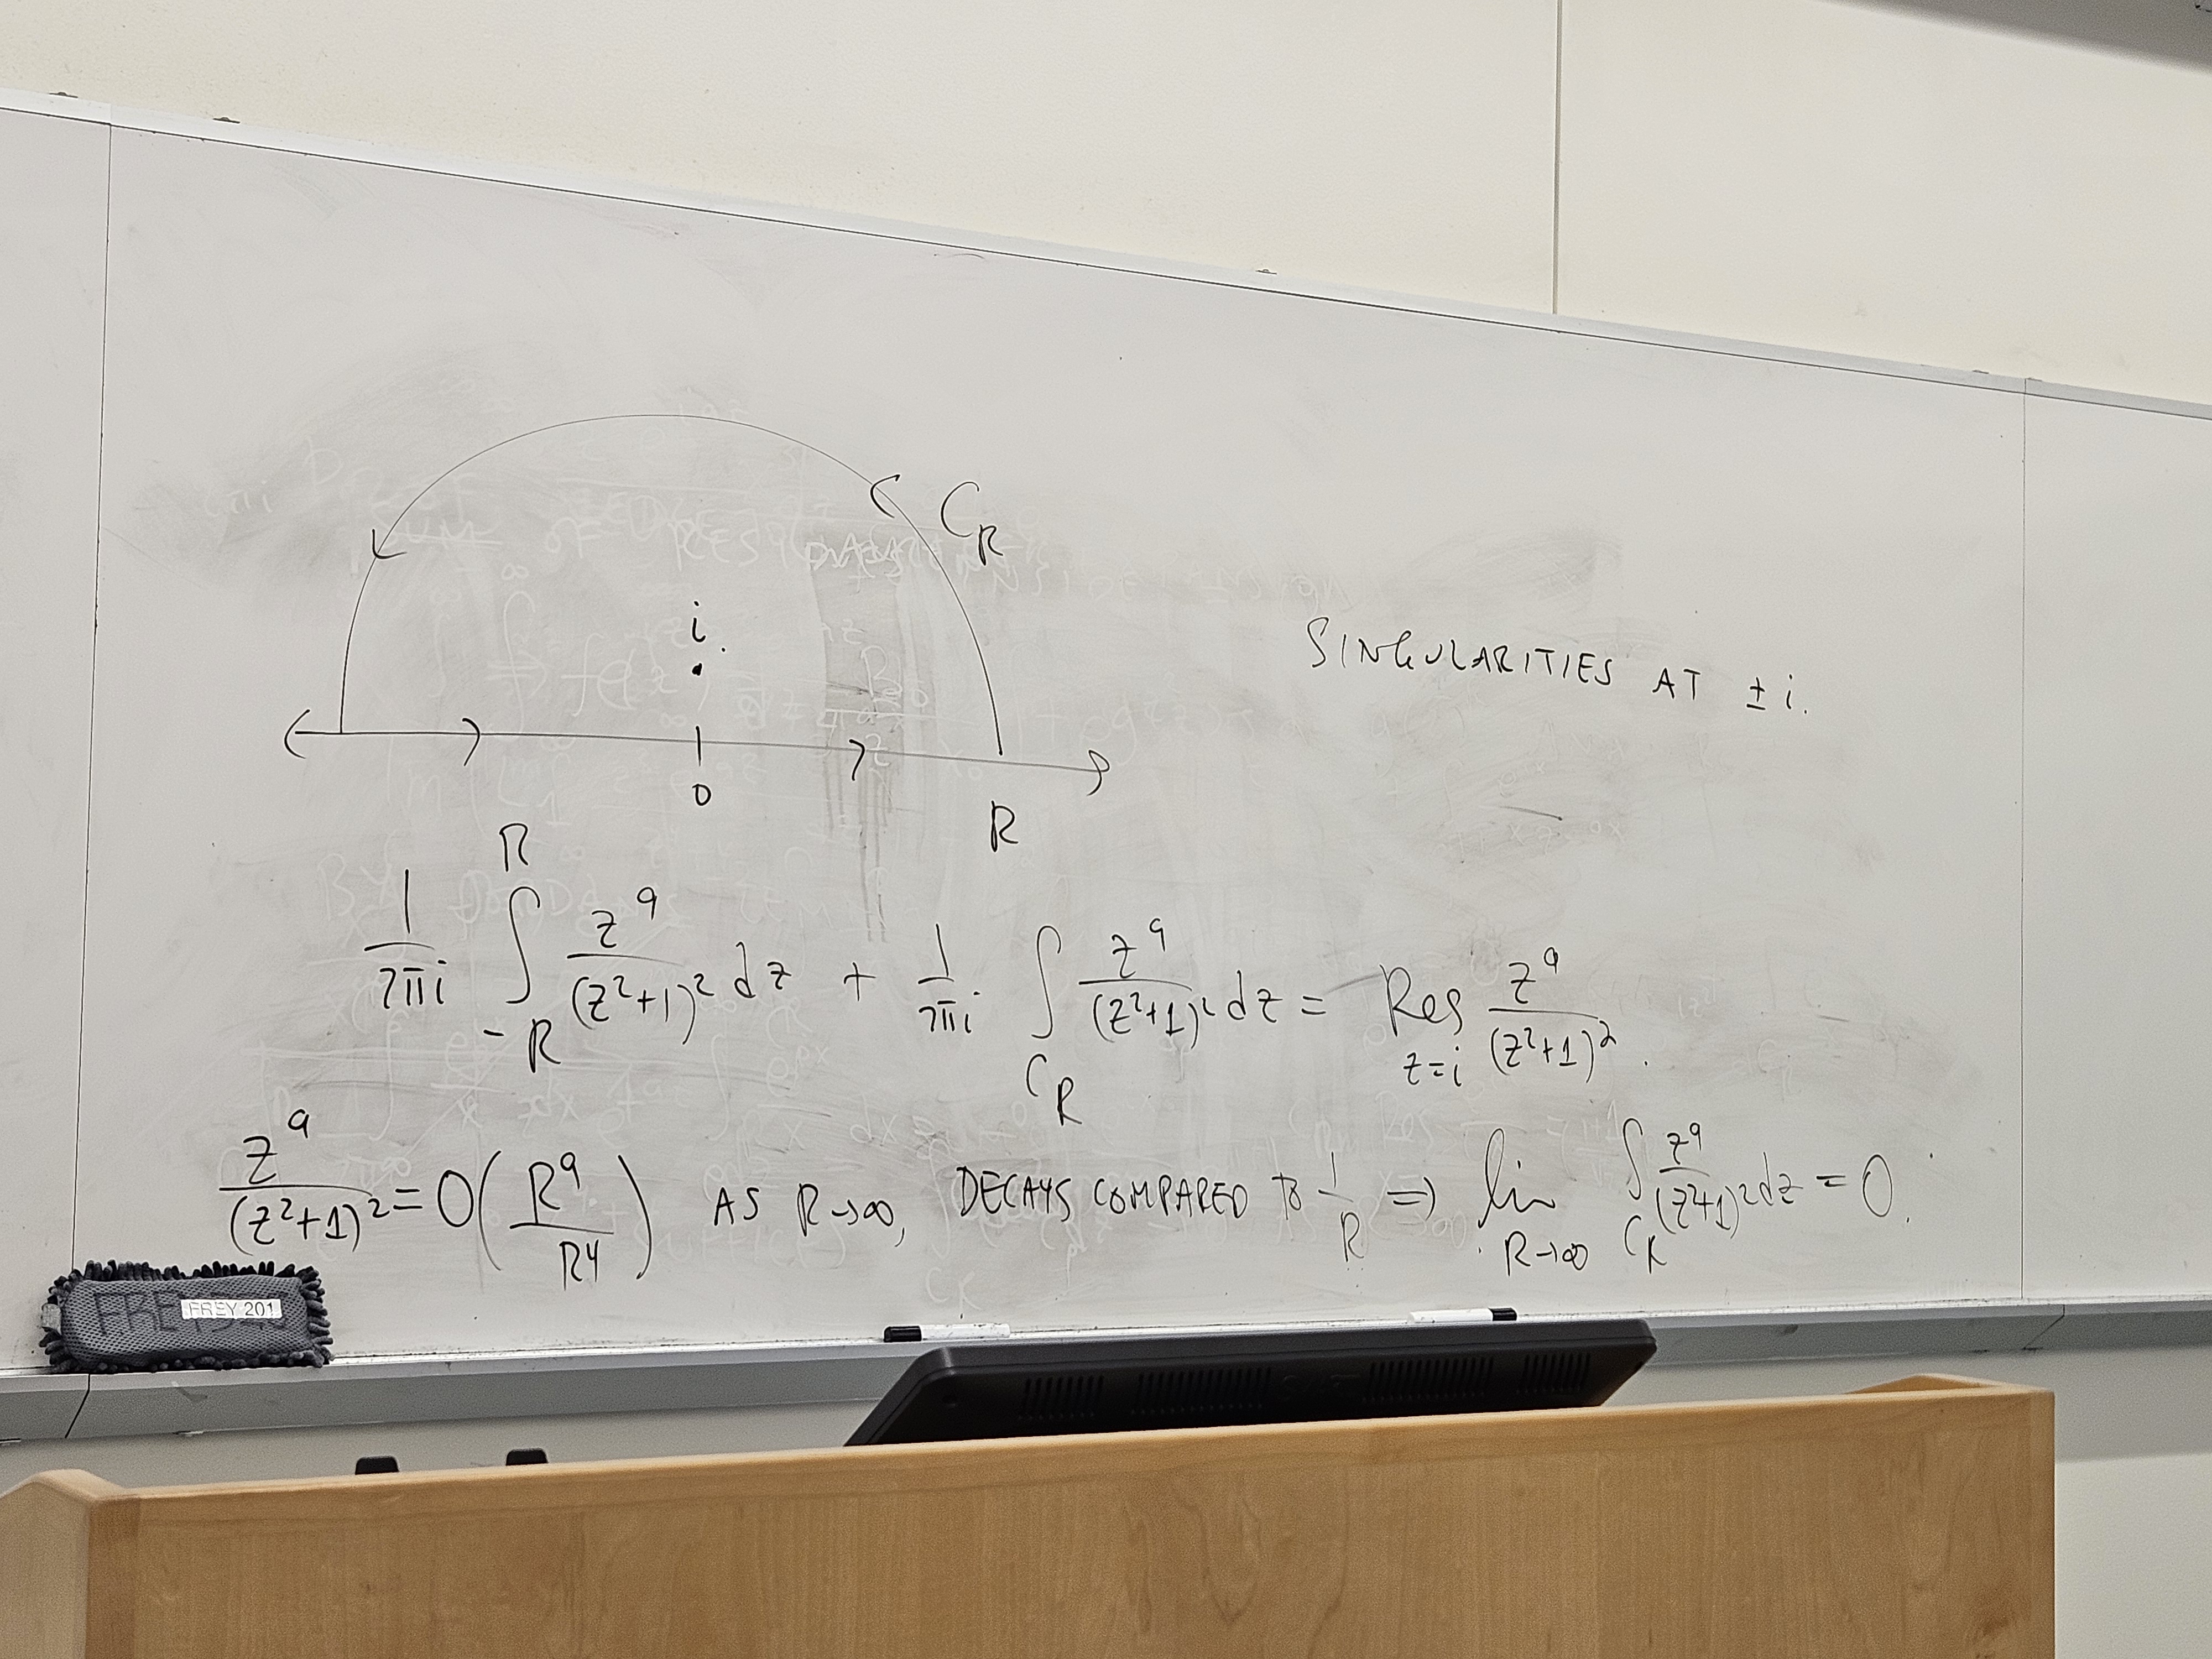 C_R
i
SINGULARITIES AT ± i.
0
R
1/2πi ∫_{-R}^{R} z^a/(z²+1)² dz + 1/2πi ∫_{C_R} z^a/(z²+1)² dz = Res_{z=i} z^a/(z²+1)².
z^a/(z²+1)² = O(R^a/R⁴) AS R→∞, DECAYS COMPARED TO 1/R ⇒ lim_{R→∞} ∫_{C_R} z^a/(z²+1)² dz = 0.
FREY 201